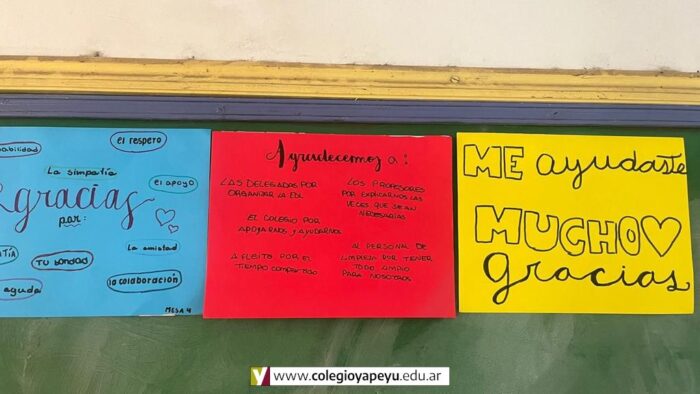 abilidad
el respeto
La simpatía
el apoyo
gracias
por:
La amistad
TÍA
TU bondad
ayuda
la colaboración
MESA 4
Agradecemos a:
LAS DELEGADAS POR
ORGANIZAR LA EDI.
EL COLEGIO POR
APOYARNOS Y AYUDARNOS
A FLEITO POR EL
TIEMPO COMPARTIDO
LOS PROFESORES
POR EXPLICARNOS LAS
VECES QUE SEAN
NECESARIAS
AL PERSONAL DE
LIMPIEZA POR TENER
TODO LIMPIO
PARA NOSOTROS
ME ayudaste
MUCHO
gracias
www.colegioyapeyu.edu.ar